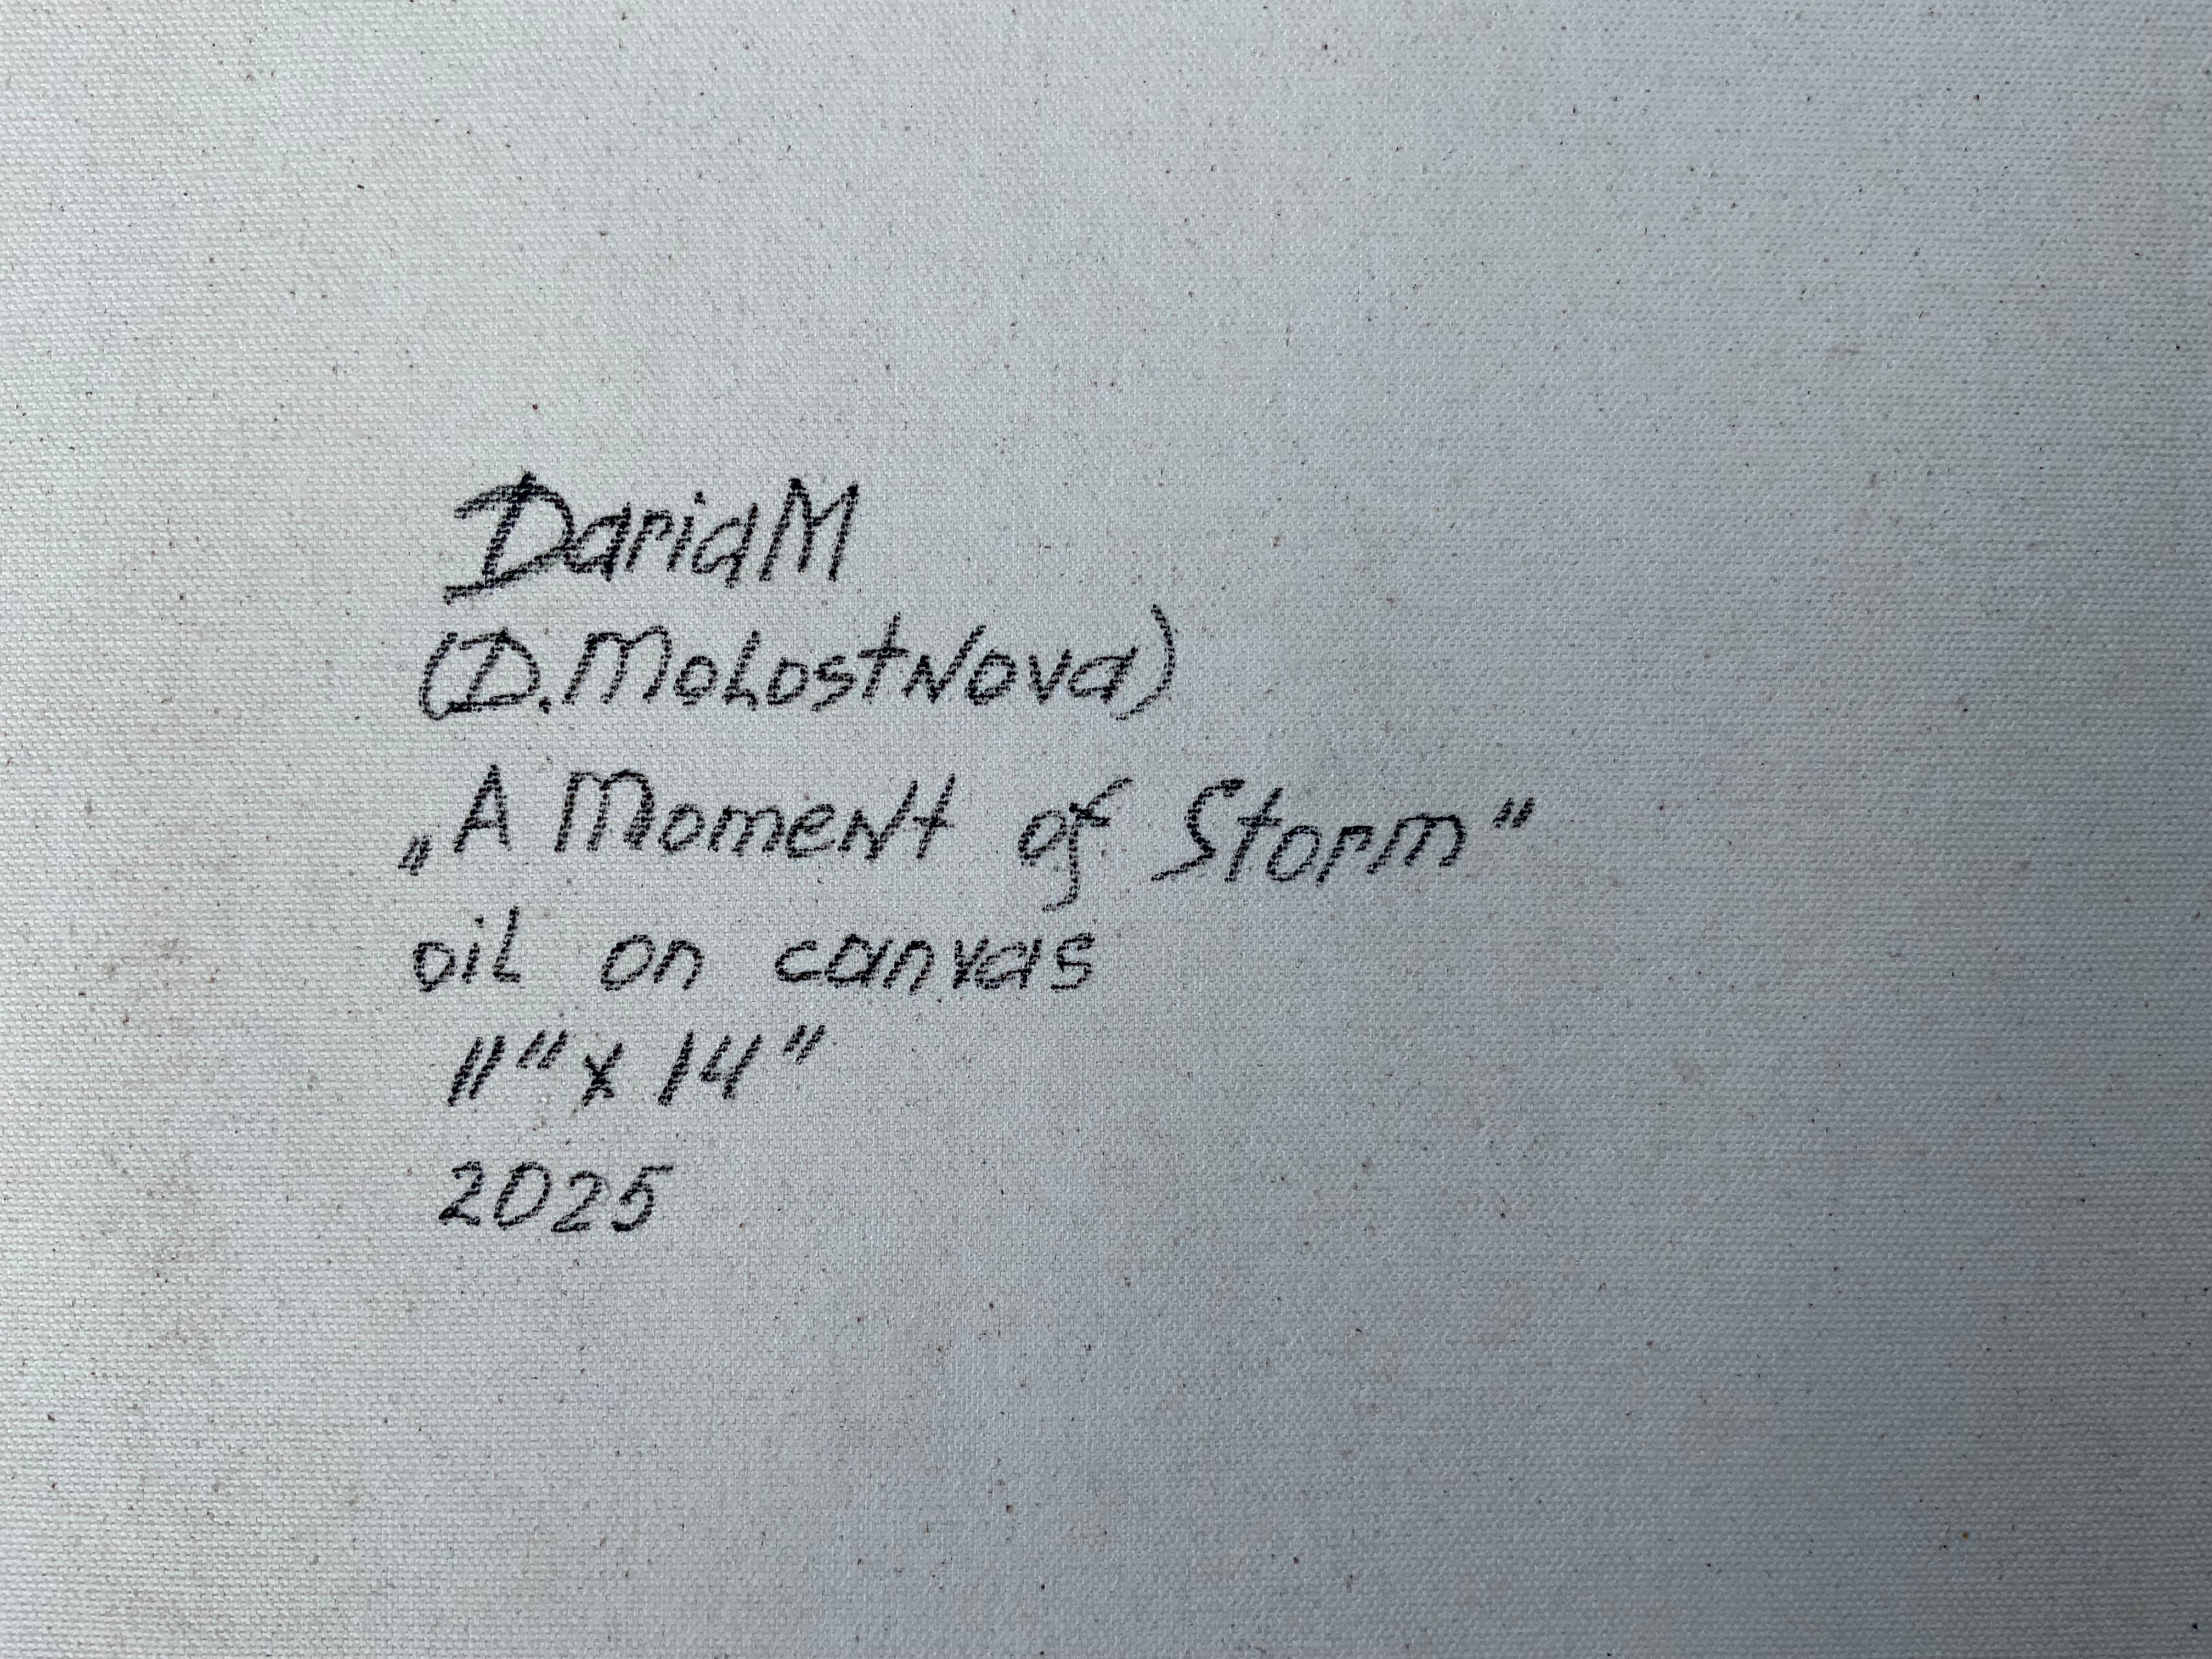 DariaM
(D. Molostnova)
„A Moment of Storm"
oil on canvas
11" x 14"
2025